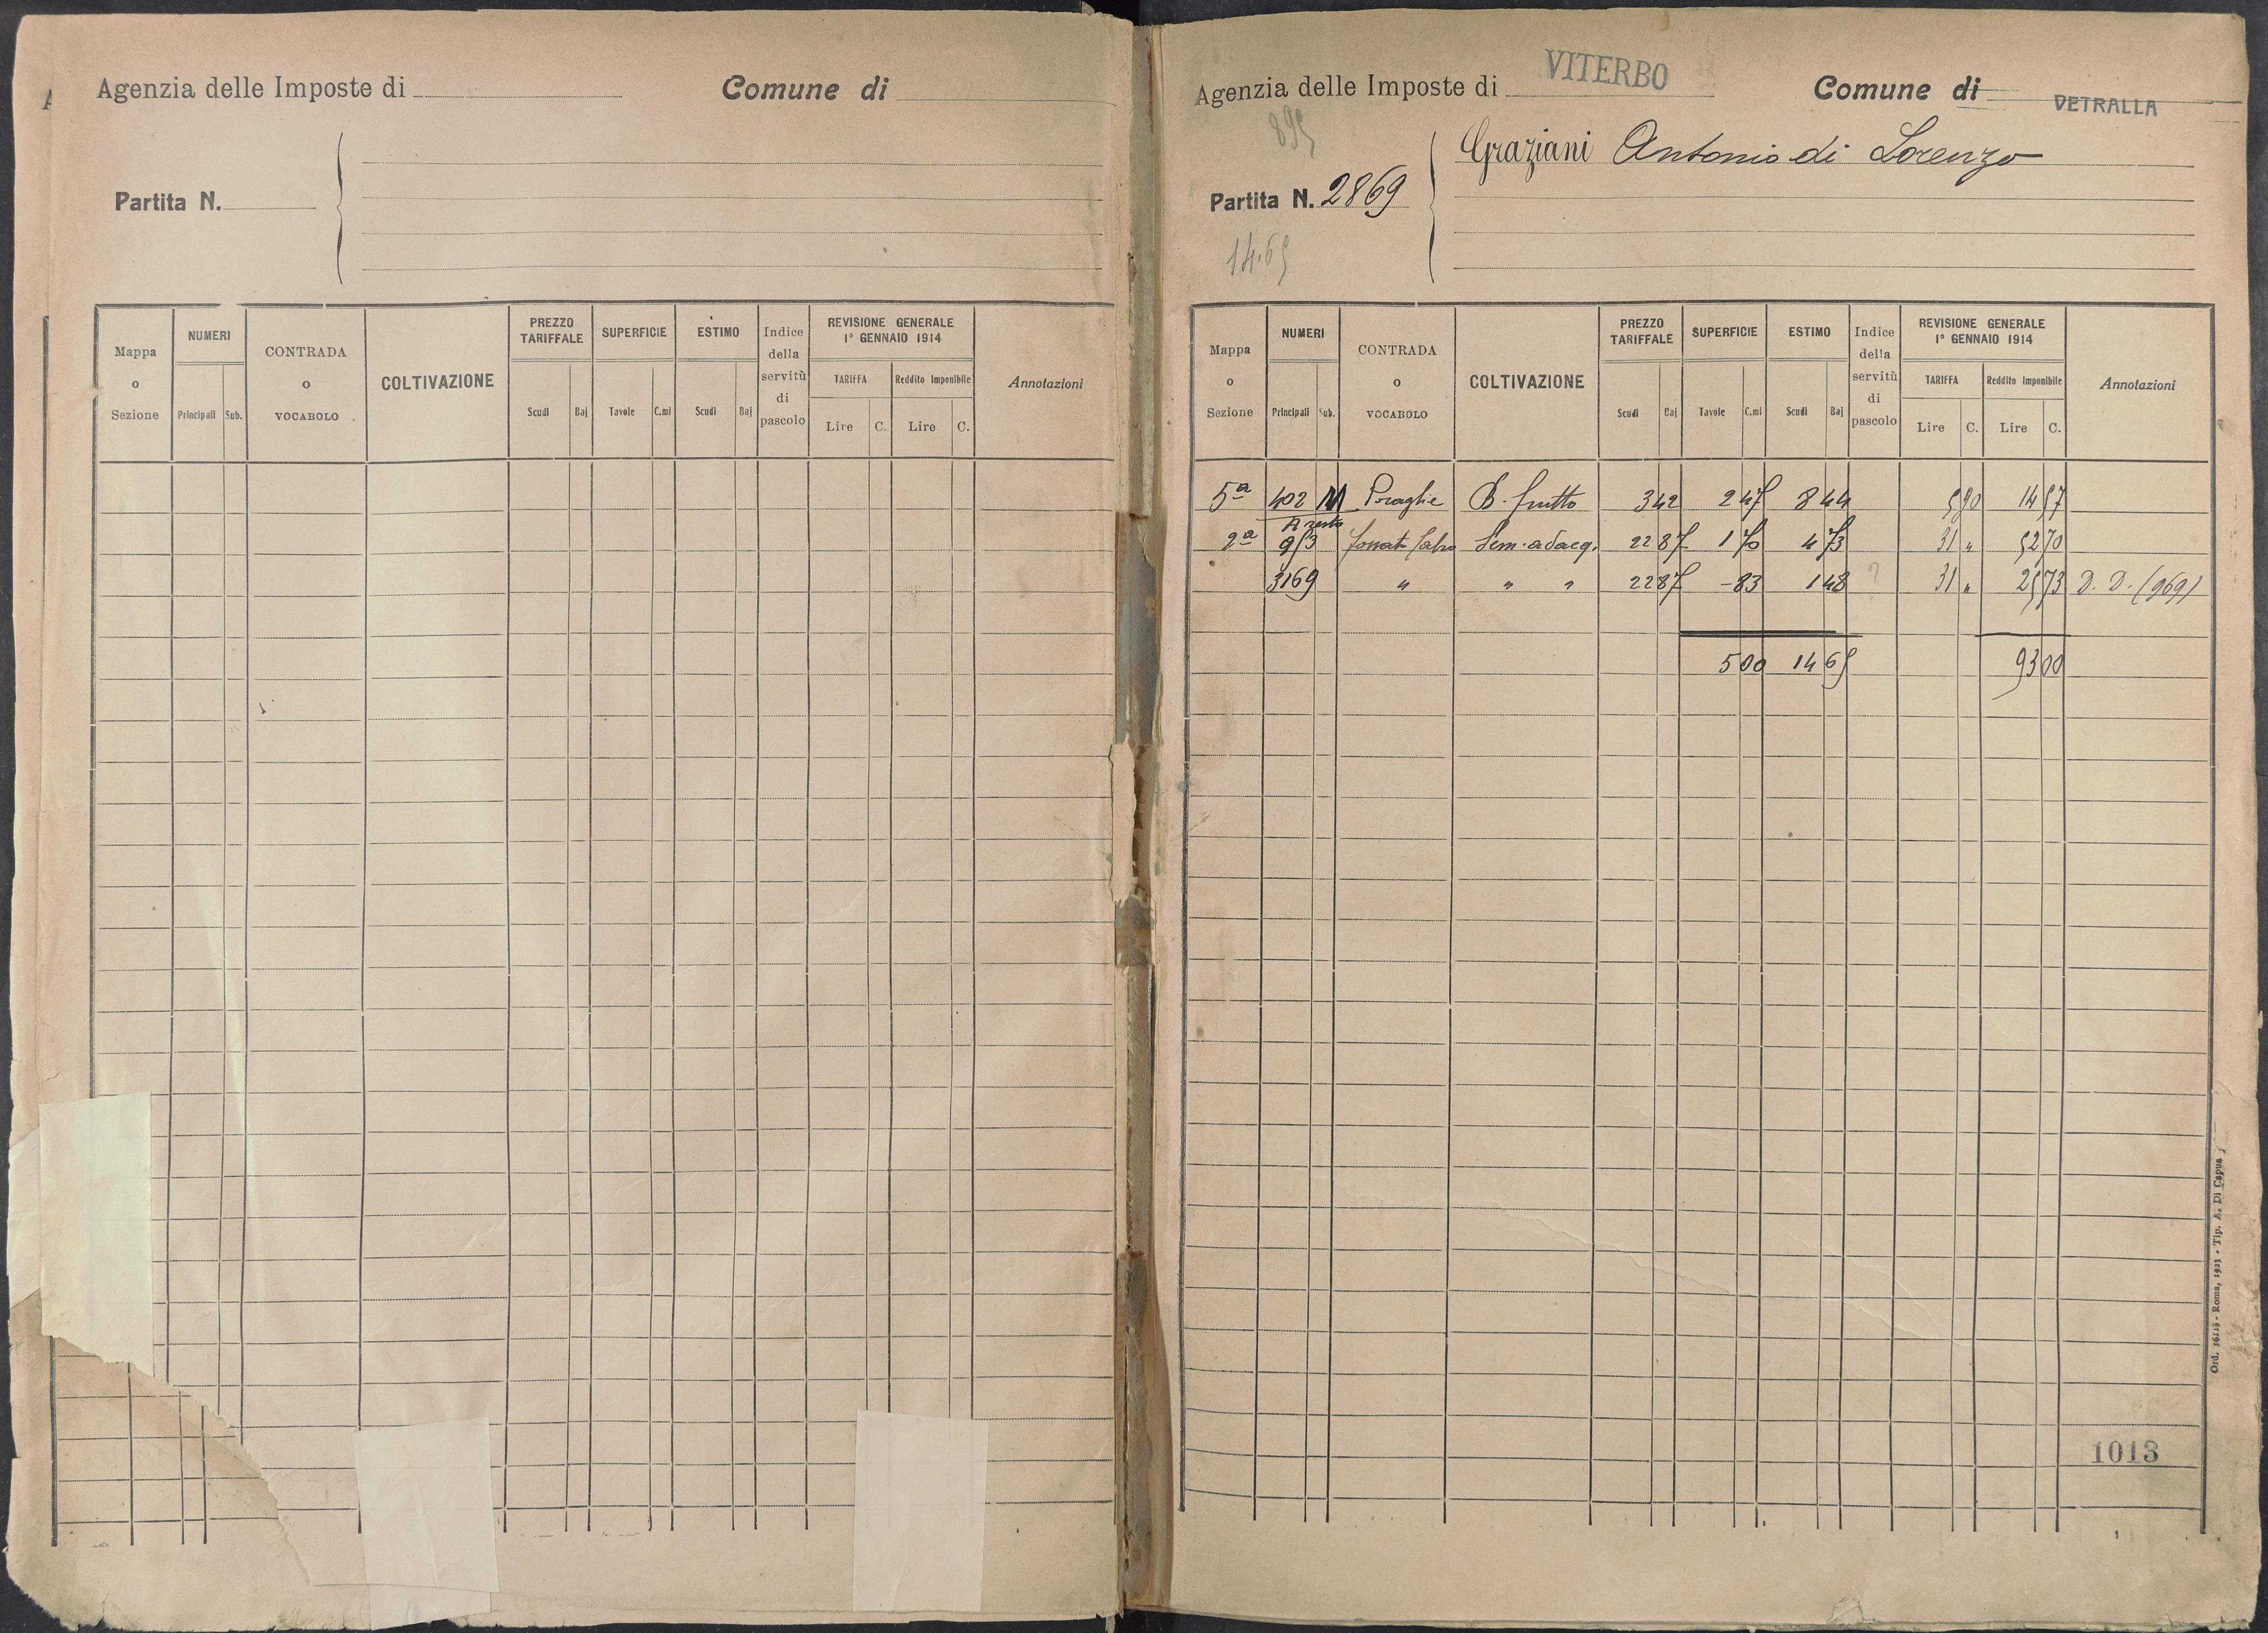 Agenzia delle Imposte di Comune di
Partita N.
Mappa o Sezione NUMERI Principali Sub. CONTRADA o VOCABOLO COLTIVAZIONE PREZZO TARIFFALE Scudi Baj SUPERFICIE Tavole C.mi ESTIMO Scudi Baj Indice della servitù di pascolo REVISIONE GENERALE 1° GENNAIO 1914 TARIFFA Lire C. Reddito Imponibile Lire C. Annotazioni
Agenzia delle Imposte di VITERBO Comune di VETRALLA
895
Graziani Antonio di Lorenzo
Partita N. 2869
14.65
Mappa o Sezione NUMERI Principali Sub. CONTRADA o VOCABOLO COLTIVAZIONE PREZZO TARIFFALE Scudi Baj SUPERFICIE Tavole C.mi ESTIMO Scudi Baj Indice della servitù di pascolo REVISIONE GENERALE 1° GENNAIO 1914 TARIFFA Lire C. Reddito Imponibile Lire C. Annotazioni
5ª 402 B. frutto 3 42 2 47 8 44 5 90 14 57
2ª Sem. adacq. 2 28 7 1 70 4 73 31 " 52 70
3169 " " " 2 28 7 - 83 1 48 ? 31 " 25 73 D. D. (969)
5 00 14 65 93 00
1013
Ord. - Roma, 1923 - Tip. A. Di Capua
1